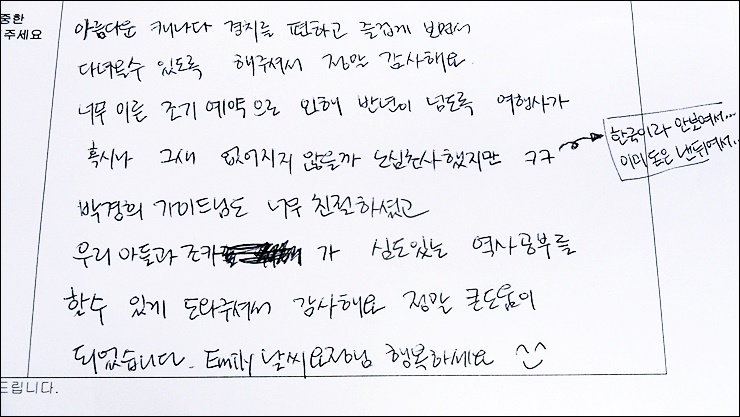 중한
주세요
아름다운 캐나다 경치를 편하고 즐겁게 보면서
다녀올수 있도록 해주셔서 정말 감사해요.
너무 이른 조기 예약으로 인해 반년이 넘도록 여행사가
혹시나 그새 없어지지 않을까 노심초사했지만 ㅋㅋ
한국이라 안보여서...
이미 돈은 낸뒤여서..
박경희 가이드님도 너무 친절하셨고
우리 아들과 조카 가 심도있는 역사공부를
할수 있게 도와주셔서 감사해요 정말 큰도움이
되었습니다. Emily 날씨요정님 행복하세요
드립니다.